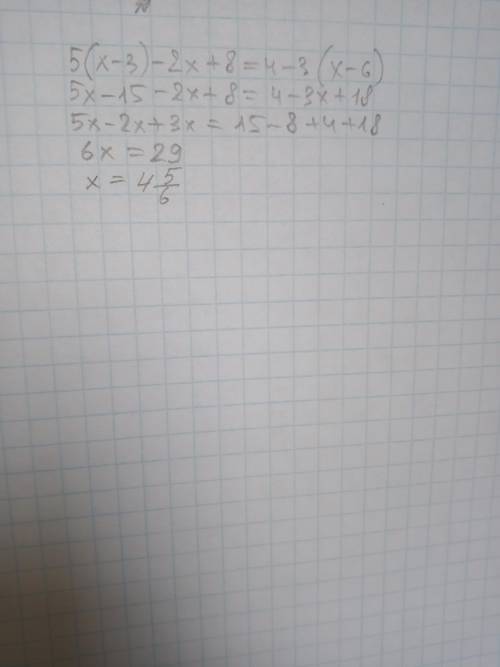 5(x-3)-2x+8=4-3(x-6)
5x-15-2x+8=4-3x+18
5x-2x+3x=15-8+4+18
6x=29
x=4 5/6